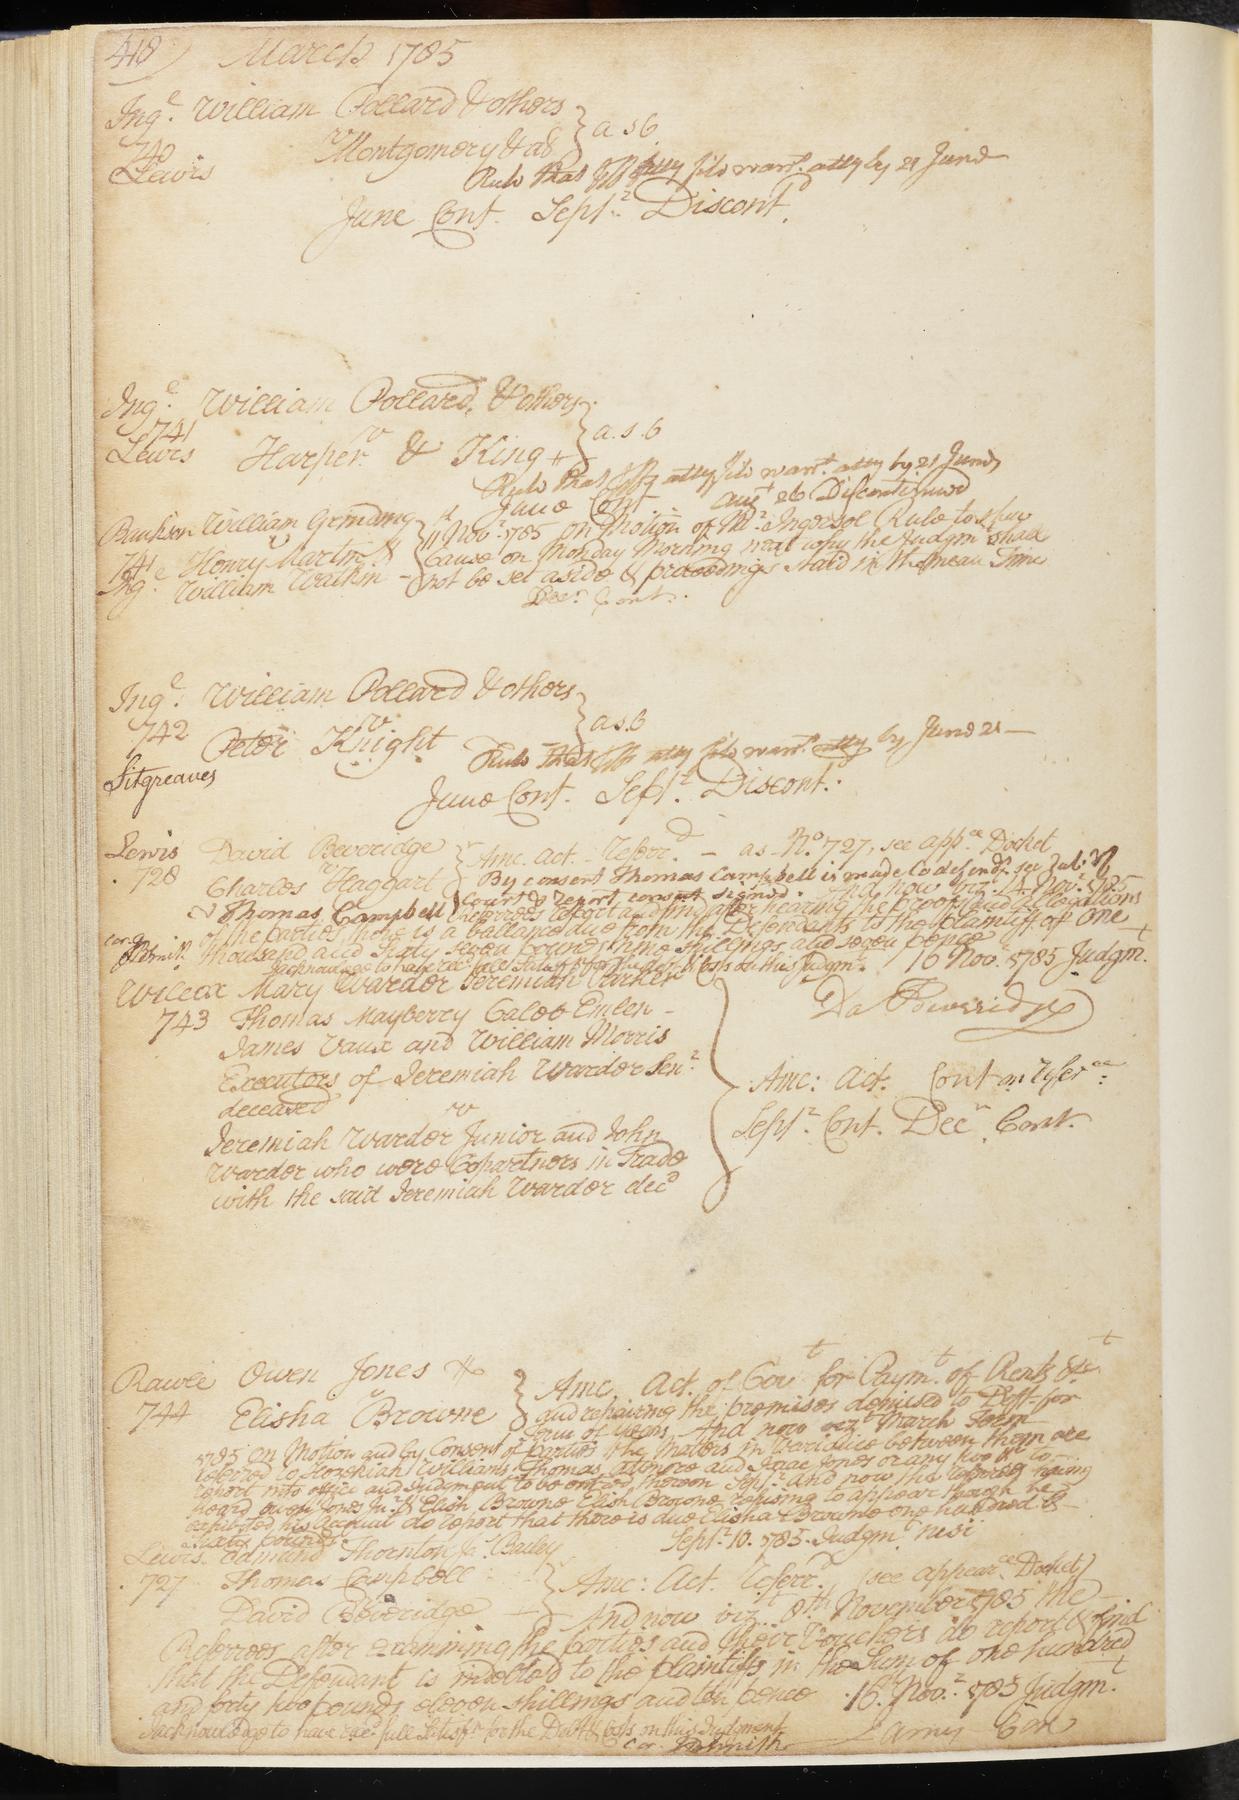 418) March 1785
Ing.e William Pollard & others
v
740 Montgomery & al } a. s 6
Lewis
Rule that Plffs atty file warrt. atty by 21 June
June Cont. Septr. Discontd.
Ing.e William Pollard, & others
741 v } a. s. 6
Lewis Harper & King
Rule that Plffs atty file warrt. atty by 21 June
June Cont. Augt 26 Discontinued
William Grindling 11 Novr. 1785 on Motion of Mr. Ingersol Rule to shew
v
741 Henry Martin & Cause on Monday Morning next why the Judgmt shall
Ing.e William not be set aside & proceedings staid in the mean Time
Decr. Cont.
Ing.e William Pollard & others
742 v } a s. 6
Peter Knight Rule that Plffs atty file warrt. atty by June 21
Sitgreaves
June Cont. Septr. Discont.
Lewis David Beveridge Amc. Act. Referrd. — as No. 727, see appce Docket
728 v
Charles Haggart By consent Thomas Campbell is made Co defendt. see
& Thomas Campbell Court & report consent signed. And now viz. 14 Novr. 1785
Referrees report and find after hearing the proofs and allegations
of the parties, there is a ballance due from the Defendants to the plaintiff of One
thousand and Sixty seven pounds nine shillings and seven pence 16 Novr. 1785 Judgmt.
I acknowledge to have recd full Satisfn for the Debt & Costs on this Judgmt.
Da Beveridge
Wilcox Mary Warder Jeremiah Parker
743 Thomas Mayberry Caleb Emlen
James Vaux and William Morris
Executors of Jeremiah Warder Senr.
deceased
v
Amc: Act. Cont on Referce.
Septr. Cont. Decr. Cont.
Jeremiah Warder Junior and John
Warder who were Copartners in Trade
with the said Jeremiah Warder decd
Rawle Owen Jones
744 v
Elisha Browne
Amc. Act. of Covt for Paymt. of Rents &c
and repairing the premises demised to Deft for
Term of years. And now vizt March Term
1785 on Motion and by Consent of Parties the Matters in Variance between them are
referred to Hezekiah Williams, Thomas Attmore and Isaac Jones or any two of to
report into office and Judgment to be entered thereon Septr. And now the referees having
heard Owen Jones Junr. & Elish Browne Elish Browne refusing to appear though he
exhibited his Account do report that there is due Elisha Browne one hundred &
pounds Septr. 10. 1785. Judgmt. nisi
Lewis Edmund Thornton Bailey
727 Thomas Campbell
v
David Beveridge
Amc: Act. Referrd. (see appearce Docket)
And now vizt. 8th November 1785 the
Referrees after examining the bodies and their Vouchers do report & find
that the Defendant is indebted to the plaintiffs in the Sum of one hundred
and forty two pounds eleven shillings and ten pence. 16. Novr. 1785 Judgmt.
I acknowledge to have recd full Satisfn for the Debt & Costs on this Judgment